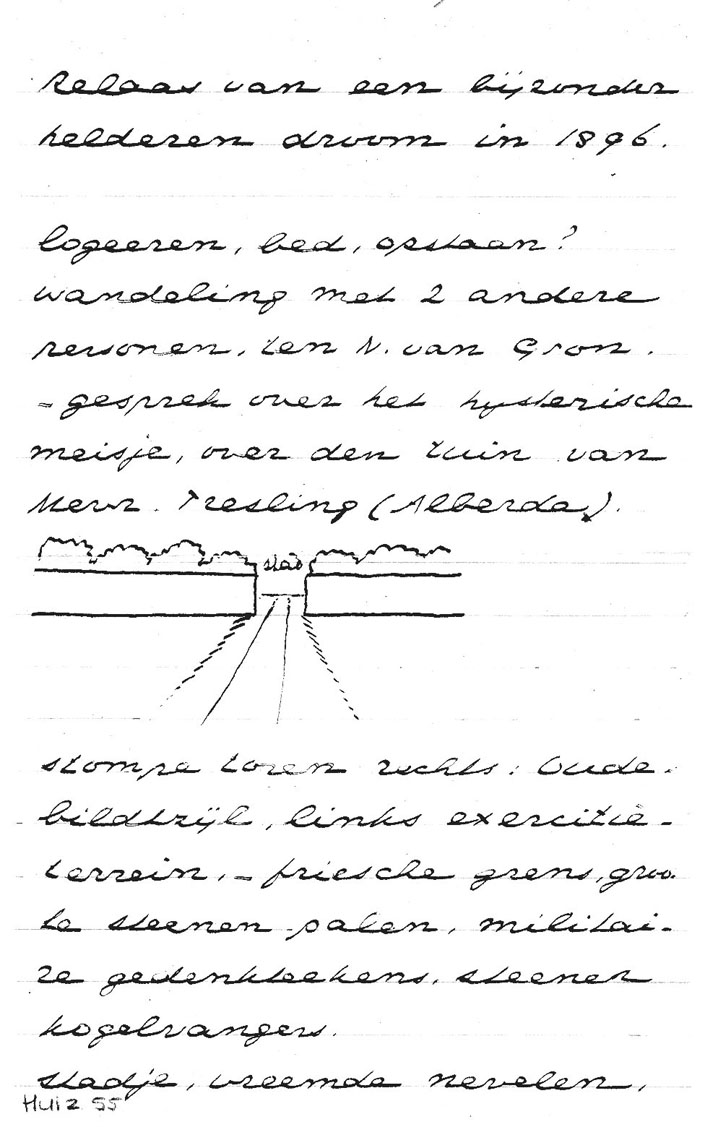 Relaas van een bijzonder
helderen droom in 1896.
logeeren, bed, opstaan?
wandeling met 2 andere
personen, ten N. van Gron.
- gesprek over het hysterische
meisje, over den tuin van
Mevr. Tresling (Alberda).
stad
stompe toren rechts: Oude-
bildtzijl, links exercitie-
terrein, - friesche grens, groo-
te steenen palen, militai-
re gedenkteekens, steenen
kogelvangers.
stadje, vreemde nevelen,
Huiz 55